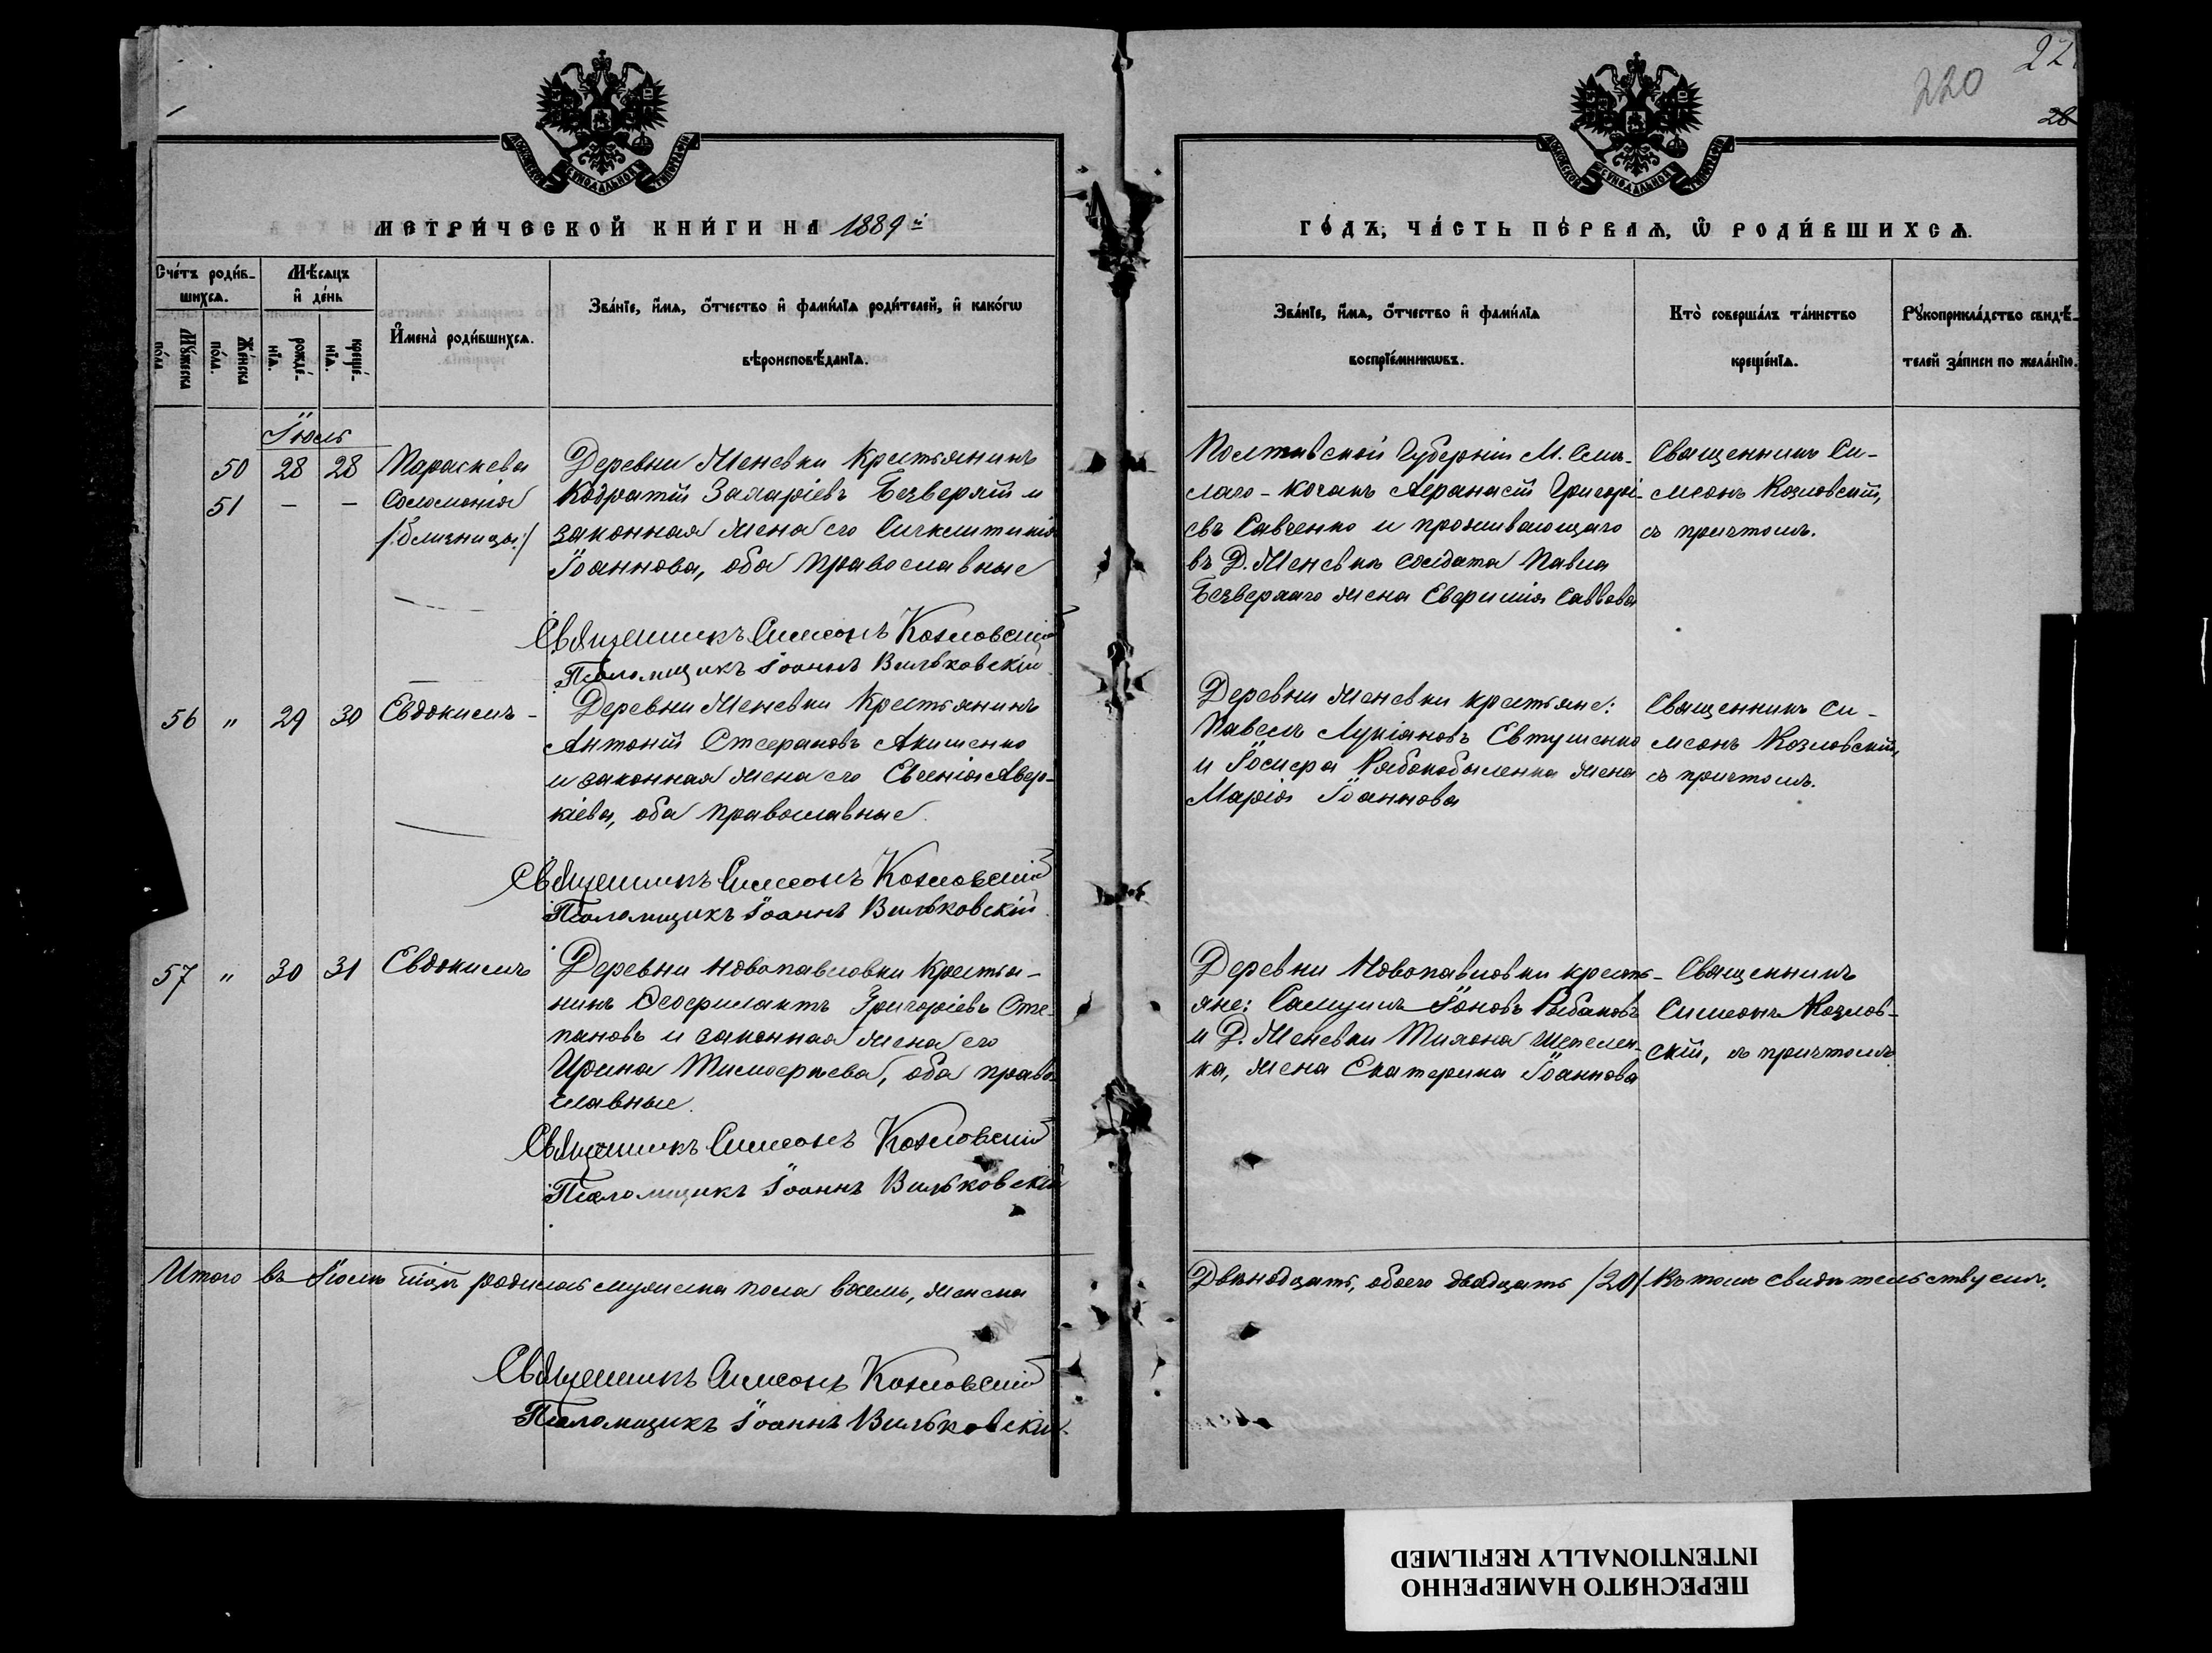 22
220
28
МЕТРИ́ЧЕСКОЙ КНИ́ГИ НА 1889й
ГО́ДЪ, ЧА́СТЬ ПЕ́РВАЯ, Ѡ РОДИ́ВШИХСЯ.
Сче́тъ роди́в-
шихся.
Мѣ́сяцъ
и де́нь
Мꙋ́жеска
по́ла.
Же́нска
по́ла.
рожде́-
нїѧ.
креще́-
нїѧ.
Имена̀ роди́вшихся.
Зва́нїе, и́мѧ, о́тчество и фами́лїѧ роди́телей, и како́гѡ
вѣроисповѣ́данїѧ.
Зва́нїе, и́мѧ, о́тчество и фами́лїѧ
воспрїе́мникѡвъ.
Кто̀ соверша́лъ та́инство
креще́нїѧ.
Рꙋкоприкла́дство свидѣ́-
телей за́писи по жела́нїю.
Іюль
50 28 28 Параскева
51 — — Соломонія
/:близницы:/
Деревни Женевки Крестьянинъ
Кодратій Захаріевъ Безверхій и
законная жена его Синклитикія
Іоаннова, оба православные
Священникъ Симеонъ Козловскій
Псаломщикъ Іоаннъ Вильковскій
Полтавской Губерніи М. Сми-
лаго - козакъ Афанасій Григорі-
евъ Савченко и проживающаго
въ Д. Женевкѣ солдата Павла
Безверхаго жена Евфимія Саввова
Священникъ Си-
меонъ Козловскій,
съ причтомъ.
56 " 29 30 Евдокимъ -
Деревни Женевки Крестьянинъ
Антоній Стефановъ Акименко
и законная жена его Евгенія Авер-
кіева, оба православные.
Священникъ Симеонъ Козловскій
Псаломщикъ Іоаннъ Вильковскій
Деревни Женевки крестьяне:
Павелъ Лукіановъ Евтушенко
и Іосифа Рябокобыленка жена
Марія Іоаннова
Священникъ Си-
меонъ Козловскій,
съ причтомъ.
57 " 30 31 Евдокимъ
Деревни Новопавловки Крестья-
нинъ Феофилактъ Григоріевъ Сте-
пановъ и законная жена его
Ирина Тимофеева, оба право-
славные.
Священникъ Симеонъ Козловскій
Псаломщикъ Іоаннъ Вильковскій
Деревни Новопавловки кресть-
яне: Самуилъ Іоновъ Рыбаковъ
и Д. Женевки Тихона Шепелен-
ка, жена Екатерина Іоаннова
Священникъ
Симеонъ Козлов-
скій, съ причтомъ
Итого въ Іюлѣ мцѣ родилось мужеска пола восемь, женска
Двѣнадцать, обоего двадцать /20/ Въ томъ свидѣтельствуемъ.
Священникъ Симеонъ Козловскій
Псаломщикъ Іоаннъ Вильковскій.
ПЕРЕСНЯТО НАМЕРЕННО
INTENTIONALLY REFILMED